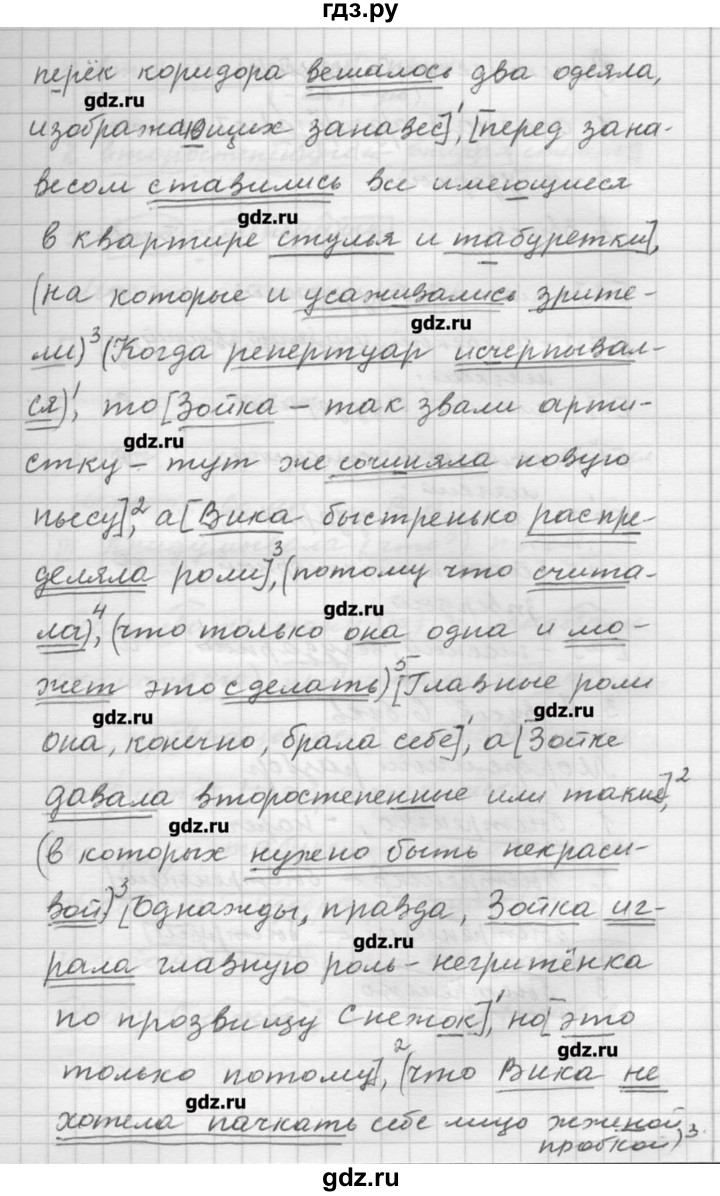 гдз.ру
перёк коридора вешалось два одеяла,
gdz.ru
изображающих занавес]¹, [перед зана-
весом ставились все имеющиеся
gdz.ru
в квартире стулья и табуретки],
(на которые и усаживались зрите-
gdz.ru
ли)³ (Когда репертуар исчерпывал-
ся)¹, то [Зойка – так звали арти-
gdz.ru
стку – тут же сочиняла новую
пьесу],² а [Вика быстренько распре-
деляла роли],³ (потому что счита-
gdz.ru
ла),⁴ (что только она одна и мо-
жет это сделать)⁵ [Главные роли
gdz.ru gdz.ru
она, конечно, брала себе]¹, а [Зойке
давала второстепенные или такие],²
gdz.ru
(в которых нужно быть некраси-
вой)³ [Однажды, правда, Зойка иг-
gdz.ru
рала главную роль - негритёнка
по прозвищу Снежок]¹, но [это
gdz.ru
только потому],² (что Вика не
gdz.ru
хотела пачкать себе лицо жжёной
пробкой)³.
gdz.ru